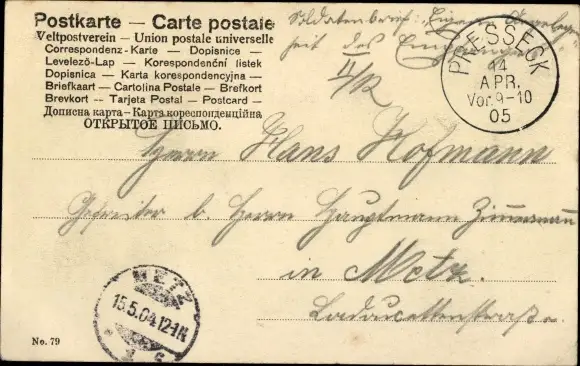 Postkarte — Carte postale
Weltpostverein — Union postale universelle
Correspondenz-Karte — Dopisnice —
Levelező-Lap — Korespondenční lístek
Dopisnica — Karta korespondencyjna —
Briefkaart — Cartolina Postale — Brefkort
Brevkort — Tarjeta Postal — Postcard —
Дописна карта — Карта кореспонденційна
ОТКРЫТОЕ ПИСЬМО.
Soldatenbrief. Eigene Angelegen
heit des Empfängers
PRESSECK
14
APR.
Vor. 9-10
05
Herrn Hans Hofmann
Gefreiter b. Herrn Hauptmann Zimmermann
in Metz.
METZ
15.5.04.12-1N
No. 79